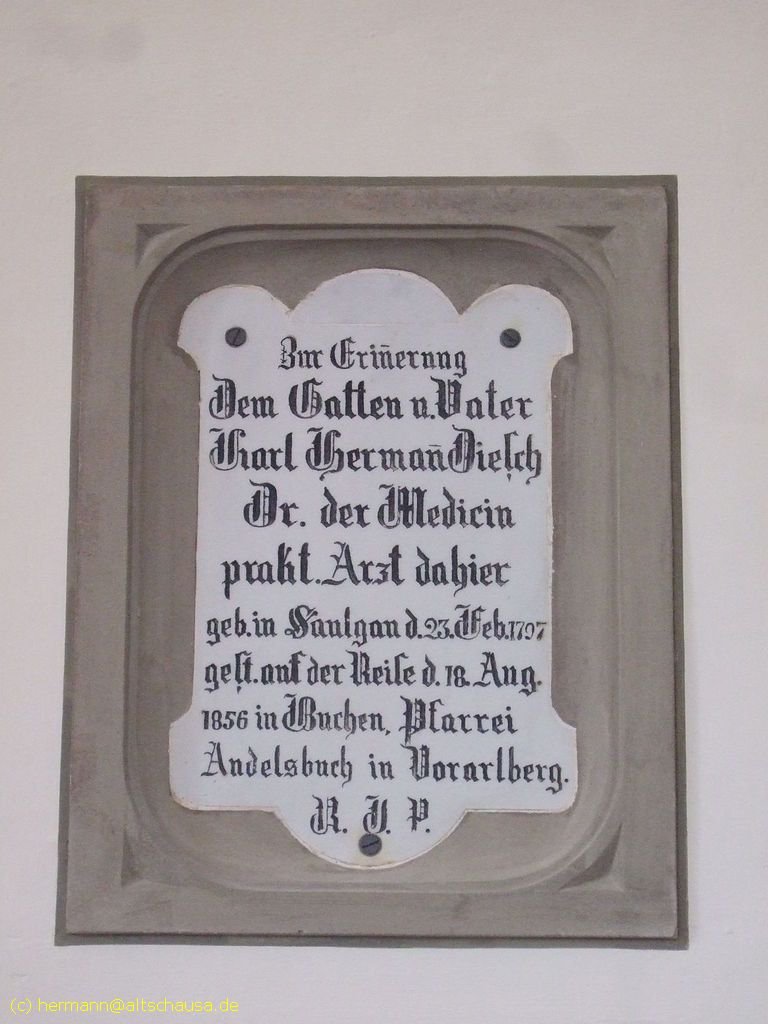 Zur Erin̄erung
Dem Gatten u. Vater
Karl Herman̄ Diesch
Dr. der Medicin
prakt. Arzt dahier
geb. in Saulgau d. 23. Feb. 1797
gest. auf der Reise d. 18. Aug.
1856 in Buchen, Pfarrei
Andelsbuch in Vorarlberg.
R. I. P.
(c) hermann@altschausa.de